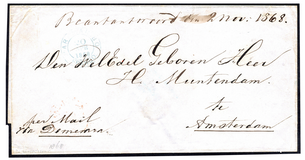 Beantwoord den 2 Nov: 1868.
Den WelEdel Geboren Heer
H. Muntendam.
te
Amsterdam
per Mail
via Demerara.